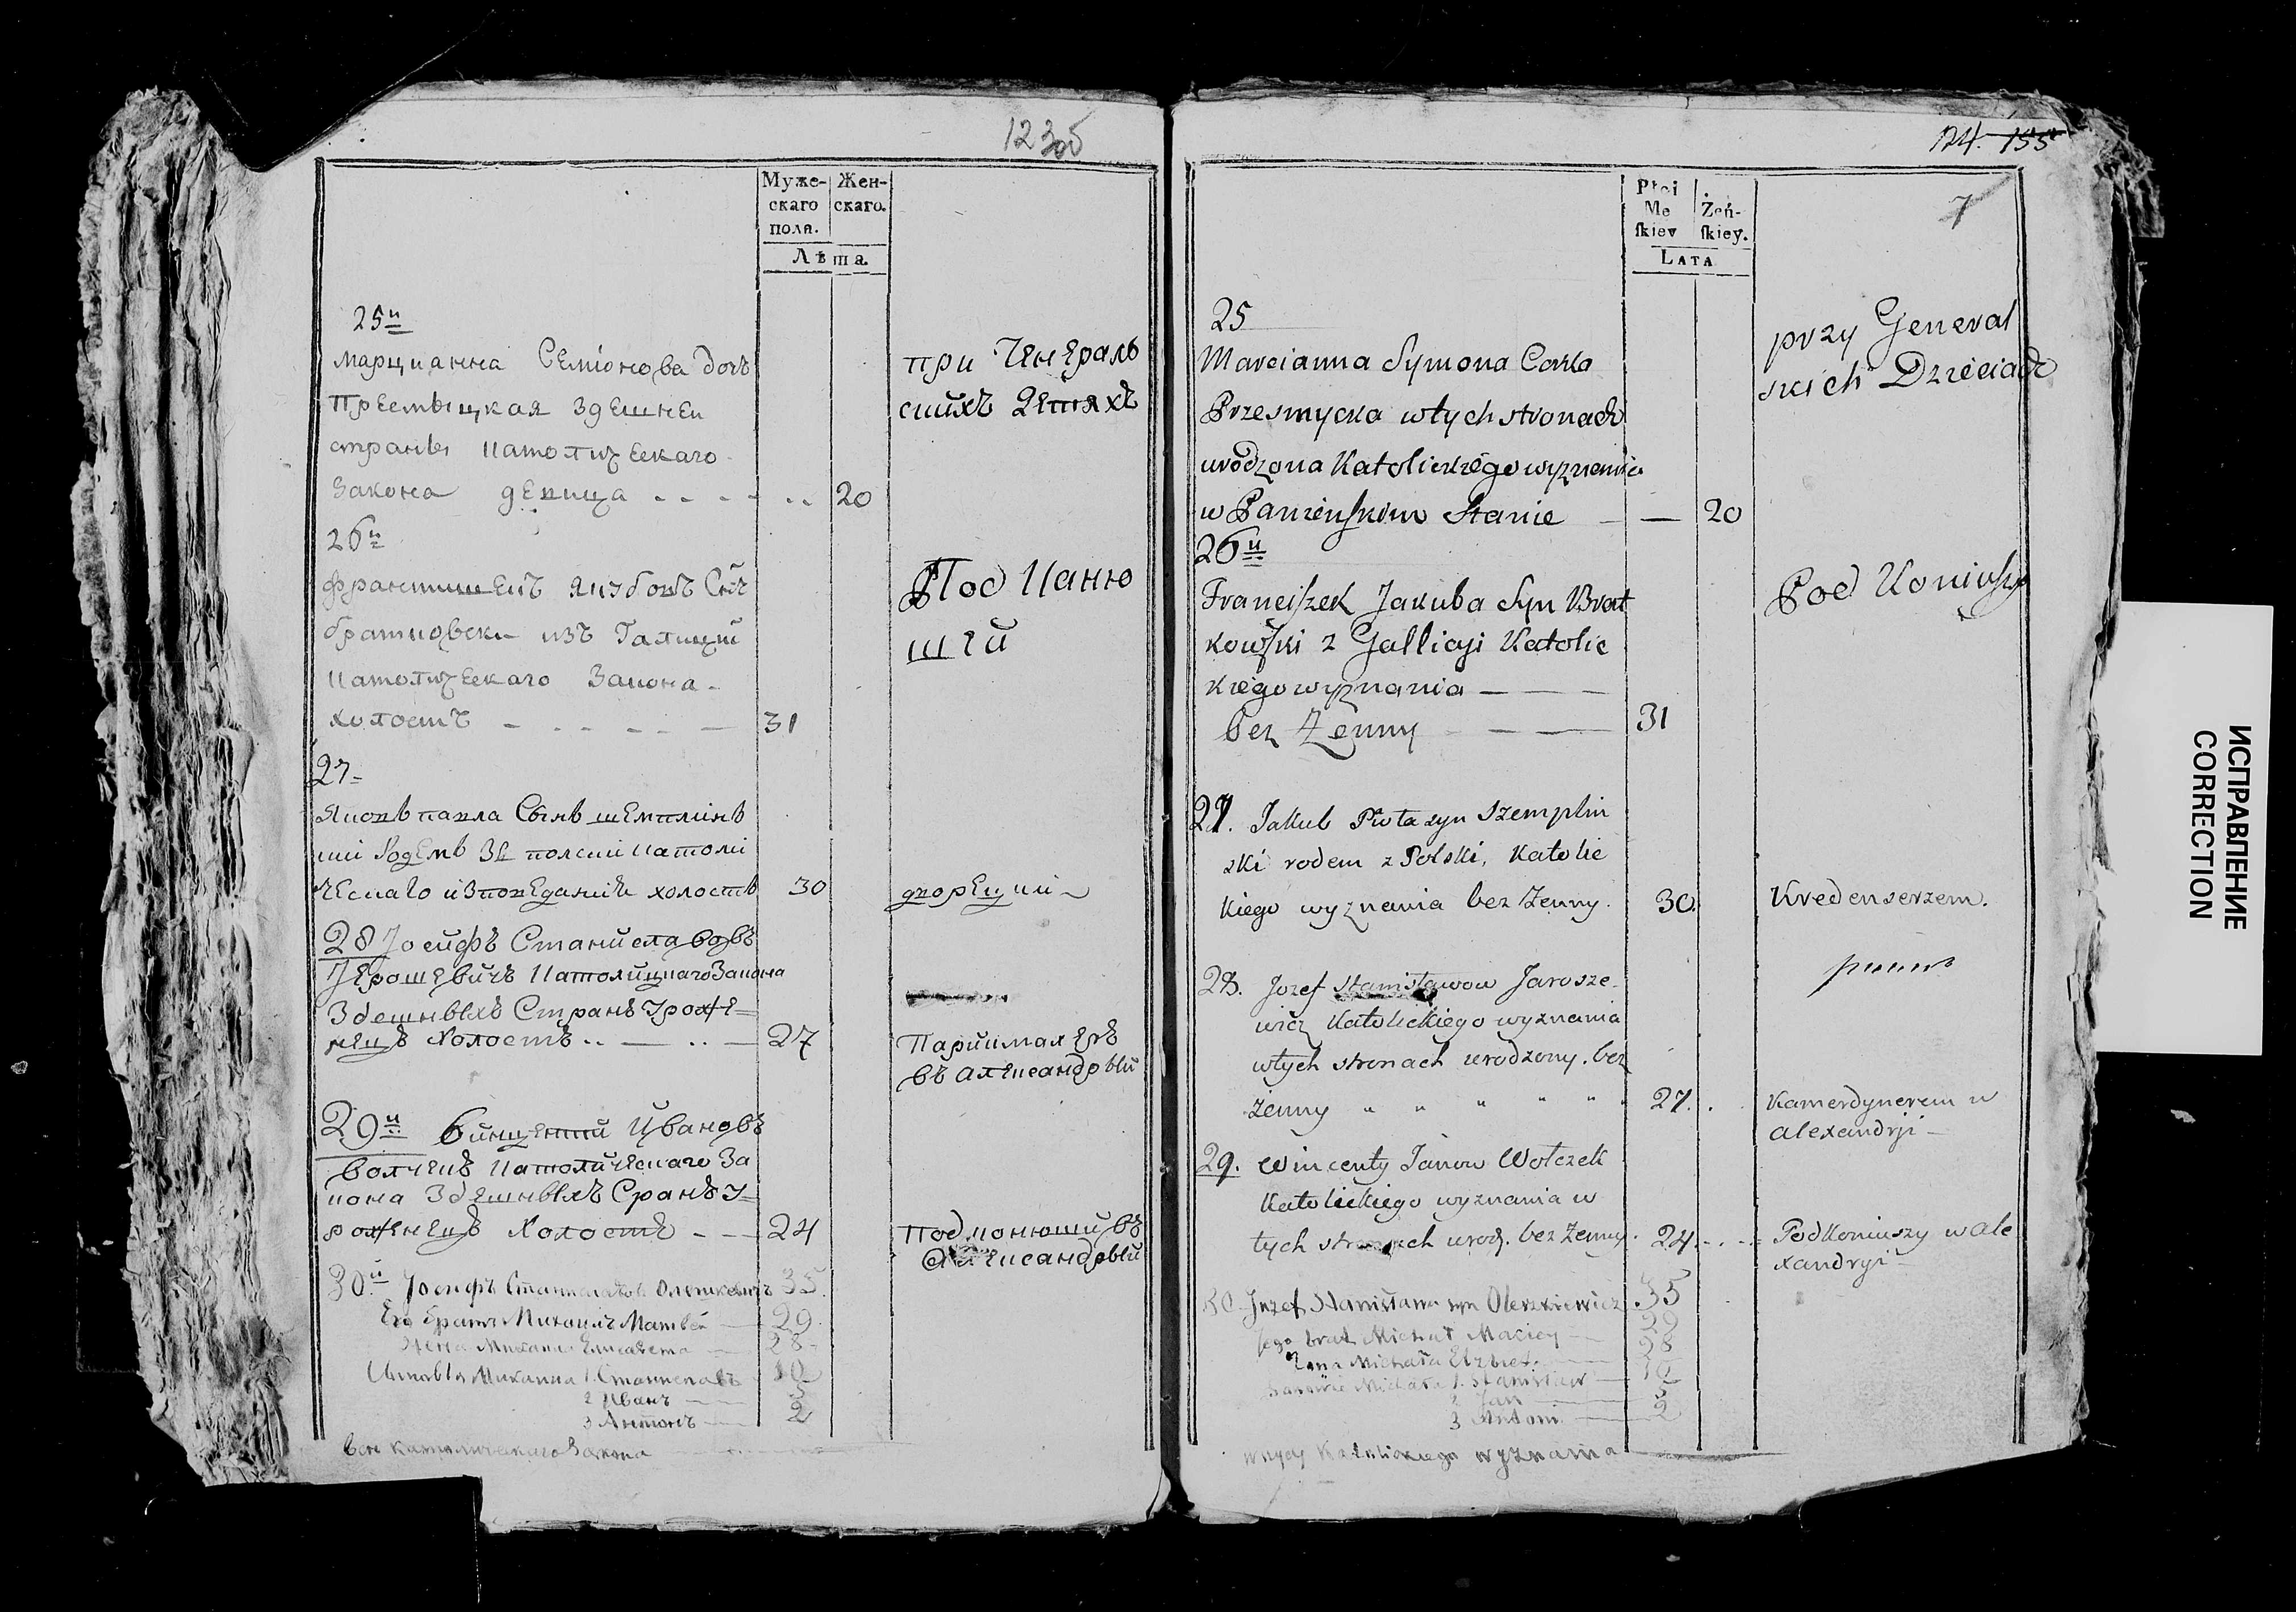 123об
Муже-
скаго
пола.
Жен-
скаго.
Лѣта.
25й
Марцианна Семіонова дочъ
Пресмыцкая здешней
страны католическаго
Закона девица 20
при Генераль
скихъ Детяхъ
26й
Франтишекъ Якубовъ Снъ
братковски изъ Галиции
католическаго Закона
холостъ 31
Под Каню
шій
27
Яковъ павла Сынъ шемплінъ
кий Родемъ Зъ полски католи
ческаго изповеданія холостъ 30
дворецкий
28 Іосифъ Станиславовъ
Іерошевичъ Католицкаго Закона
Здешныхъ Странъ Уроже
нецъ Холостъ 27
въ александрыи
29й Винцентий Ивановъ
Волчекъ Католическаго За
кона Здешныхъ Странъ У
роженецъ Холостъ 24
подконюший въ
Александрыи
30й Іосифъ Станиславовъ Олешкевичъ 35
Его братъ Михаилъ Матвей 29
Жена Михаила Елисавета 28
Сыновья Михаила 1. Станиславъ 10
2 Иванъ 5
3 Антонъ 2
все католическаго Закона
124. 155
7
Płci
Mę
ſkiey
Żeń-
ſkiey.
Lata
25
Marcianna Symona Corka
Przesmycka w tych stronach
urodzona Katolickiego wyznania
w Panieńskim Stanie — 20
przy General
skich Dzieciach
26й
Franciſzek Jakuba Syn Brat
kowſki z Gallicyi Katolic
kiego wyznania
bez Żenny 31
Pod Koniuszy
27. Jakub Piotra syn Szemplin
ski rodem z Polski, Katolic
kiego wyznania bez Żenny. 30.
Kredenserzem.
28. Jozef Stanisławow Jarosze
wicz Katolickiego wyznania
w tych stronach urodzony. bez
żenny " " " " " 27.
Kamerdynerem w
alexandryi
29. Wincenty Janow Wołczek
Katolickiego wyznania w
tych stronach urodz. bez Żenny. 24.
Podkoniuszy w ale
xandryi
30. Jozef Stanisława syn Oleszkiewicz 35
Jego brat Michał Maciey 29
Żona Michała Elzbieta 28
Synowie Michała 1. Stanisław 10
2 Jan 5
3 Antoni 2
wszyscy Katolickiego wyznania
ИСПРАВЛЕНИЕ
CORRECTION